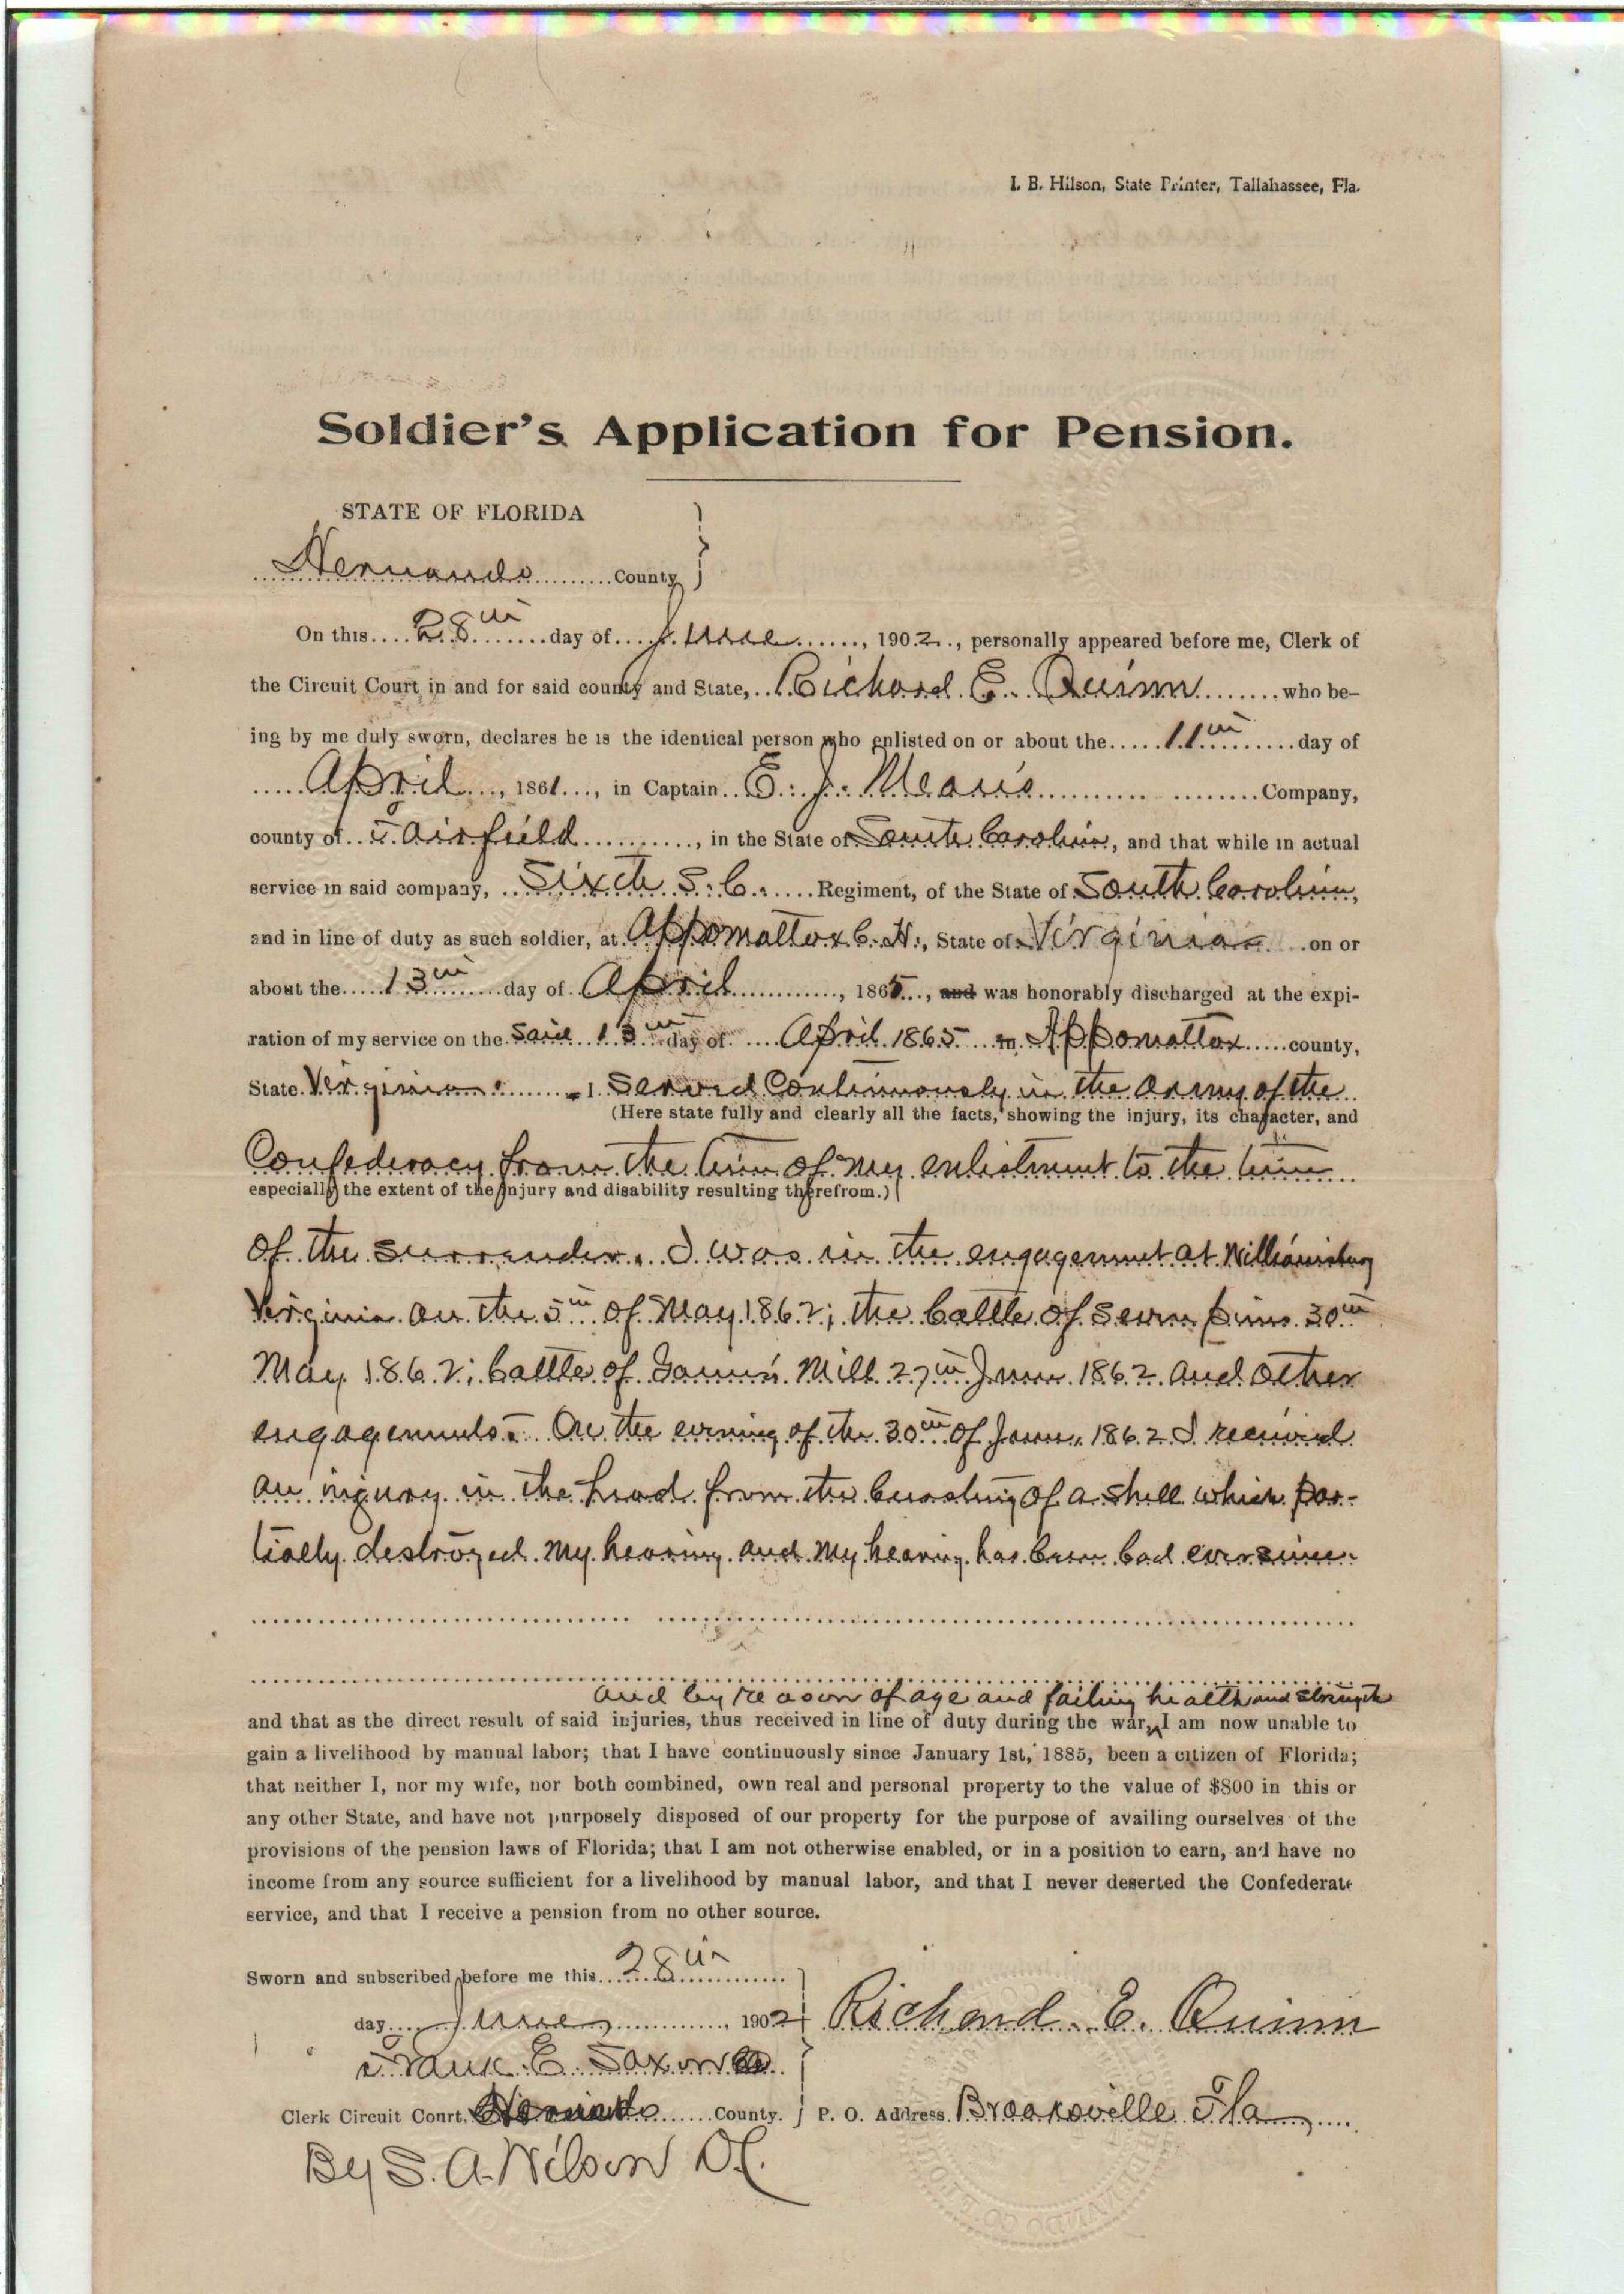 I. B. Hilson, State Printer, Tallahassee, Fla.
Soldier's Application for Pension.
STATE OF FLORIDA
Hernando County
On this 28th day of June, 1902, personally appeared before me, Clerk of
the Circuit Court in and for said county and State, Richard E. Quinn who be-
ing by me duly sworn, declares he is the identical person who enlisted on or about the 11th day of
April, 1861, in Captain E. J. Means Company,
county of Fairfield, in the State of South Carolina, and that while in actual
service in said company, Sixth S. C. Regiment, of the State of South Carolina,
and in line of duty as such soldier, at Appomattox C. H., State of Virginia on or
about the 13th day of April, 1865, and was honorably discharged at the expi-
ration of my service on the said 13th day of April 1865 in Appomattox county,
State Virginia. - I served continuously in the army of the
(Here state fully and clearly all the facts, showing the injury, its character, and
Confederacy from the time of my enlistment to the time
especially the extent of the injury and disability resulting therefrom.)
of the surrender. I was in the engagement at Williamsburg
Virginia on the 5th of May 1862; the battle of Seven pines 30th
May 1862; battle of Gaines Mill 27th June 1862 and other
engagements. On the evening of the 30th of June, 1862 I received
an injury in the head from the bursting of a shell which par-
tially destroyed my hearing and my hearing has been bad ever since.
and by reason of age and failing health and strength
and that as the direct result of said injuries, thus received in line of duty during the war, I am now unable to
gain a livelihood by manual labor; that I have continuously since January 1st, 1885, been a citizen of Florida;
that neither I, nor my wife, nor both combined, own real and personal property to the value of $800 in this or
any other State, and have not purposely disposed of our property for the purpose of availing ourselves of the
provisions of the pension laws of Florida; that I am not otherwise enabled, or in a position to earn, and have no
income from any source sufficient for a livelihood by manual labor, and that I never deserted the Confederate
service, and that I receive a pension from no other source.
Sworn and subscribed before me this 28th
day June, 1902 Richard E. Quinn
Frank E. Saxon
Clerk Circuit Court, Hernando County. P. O. Address Brooksville Fla
By S. A. Wilson D.C.